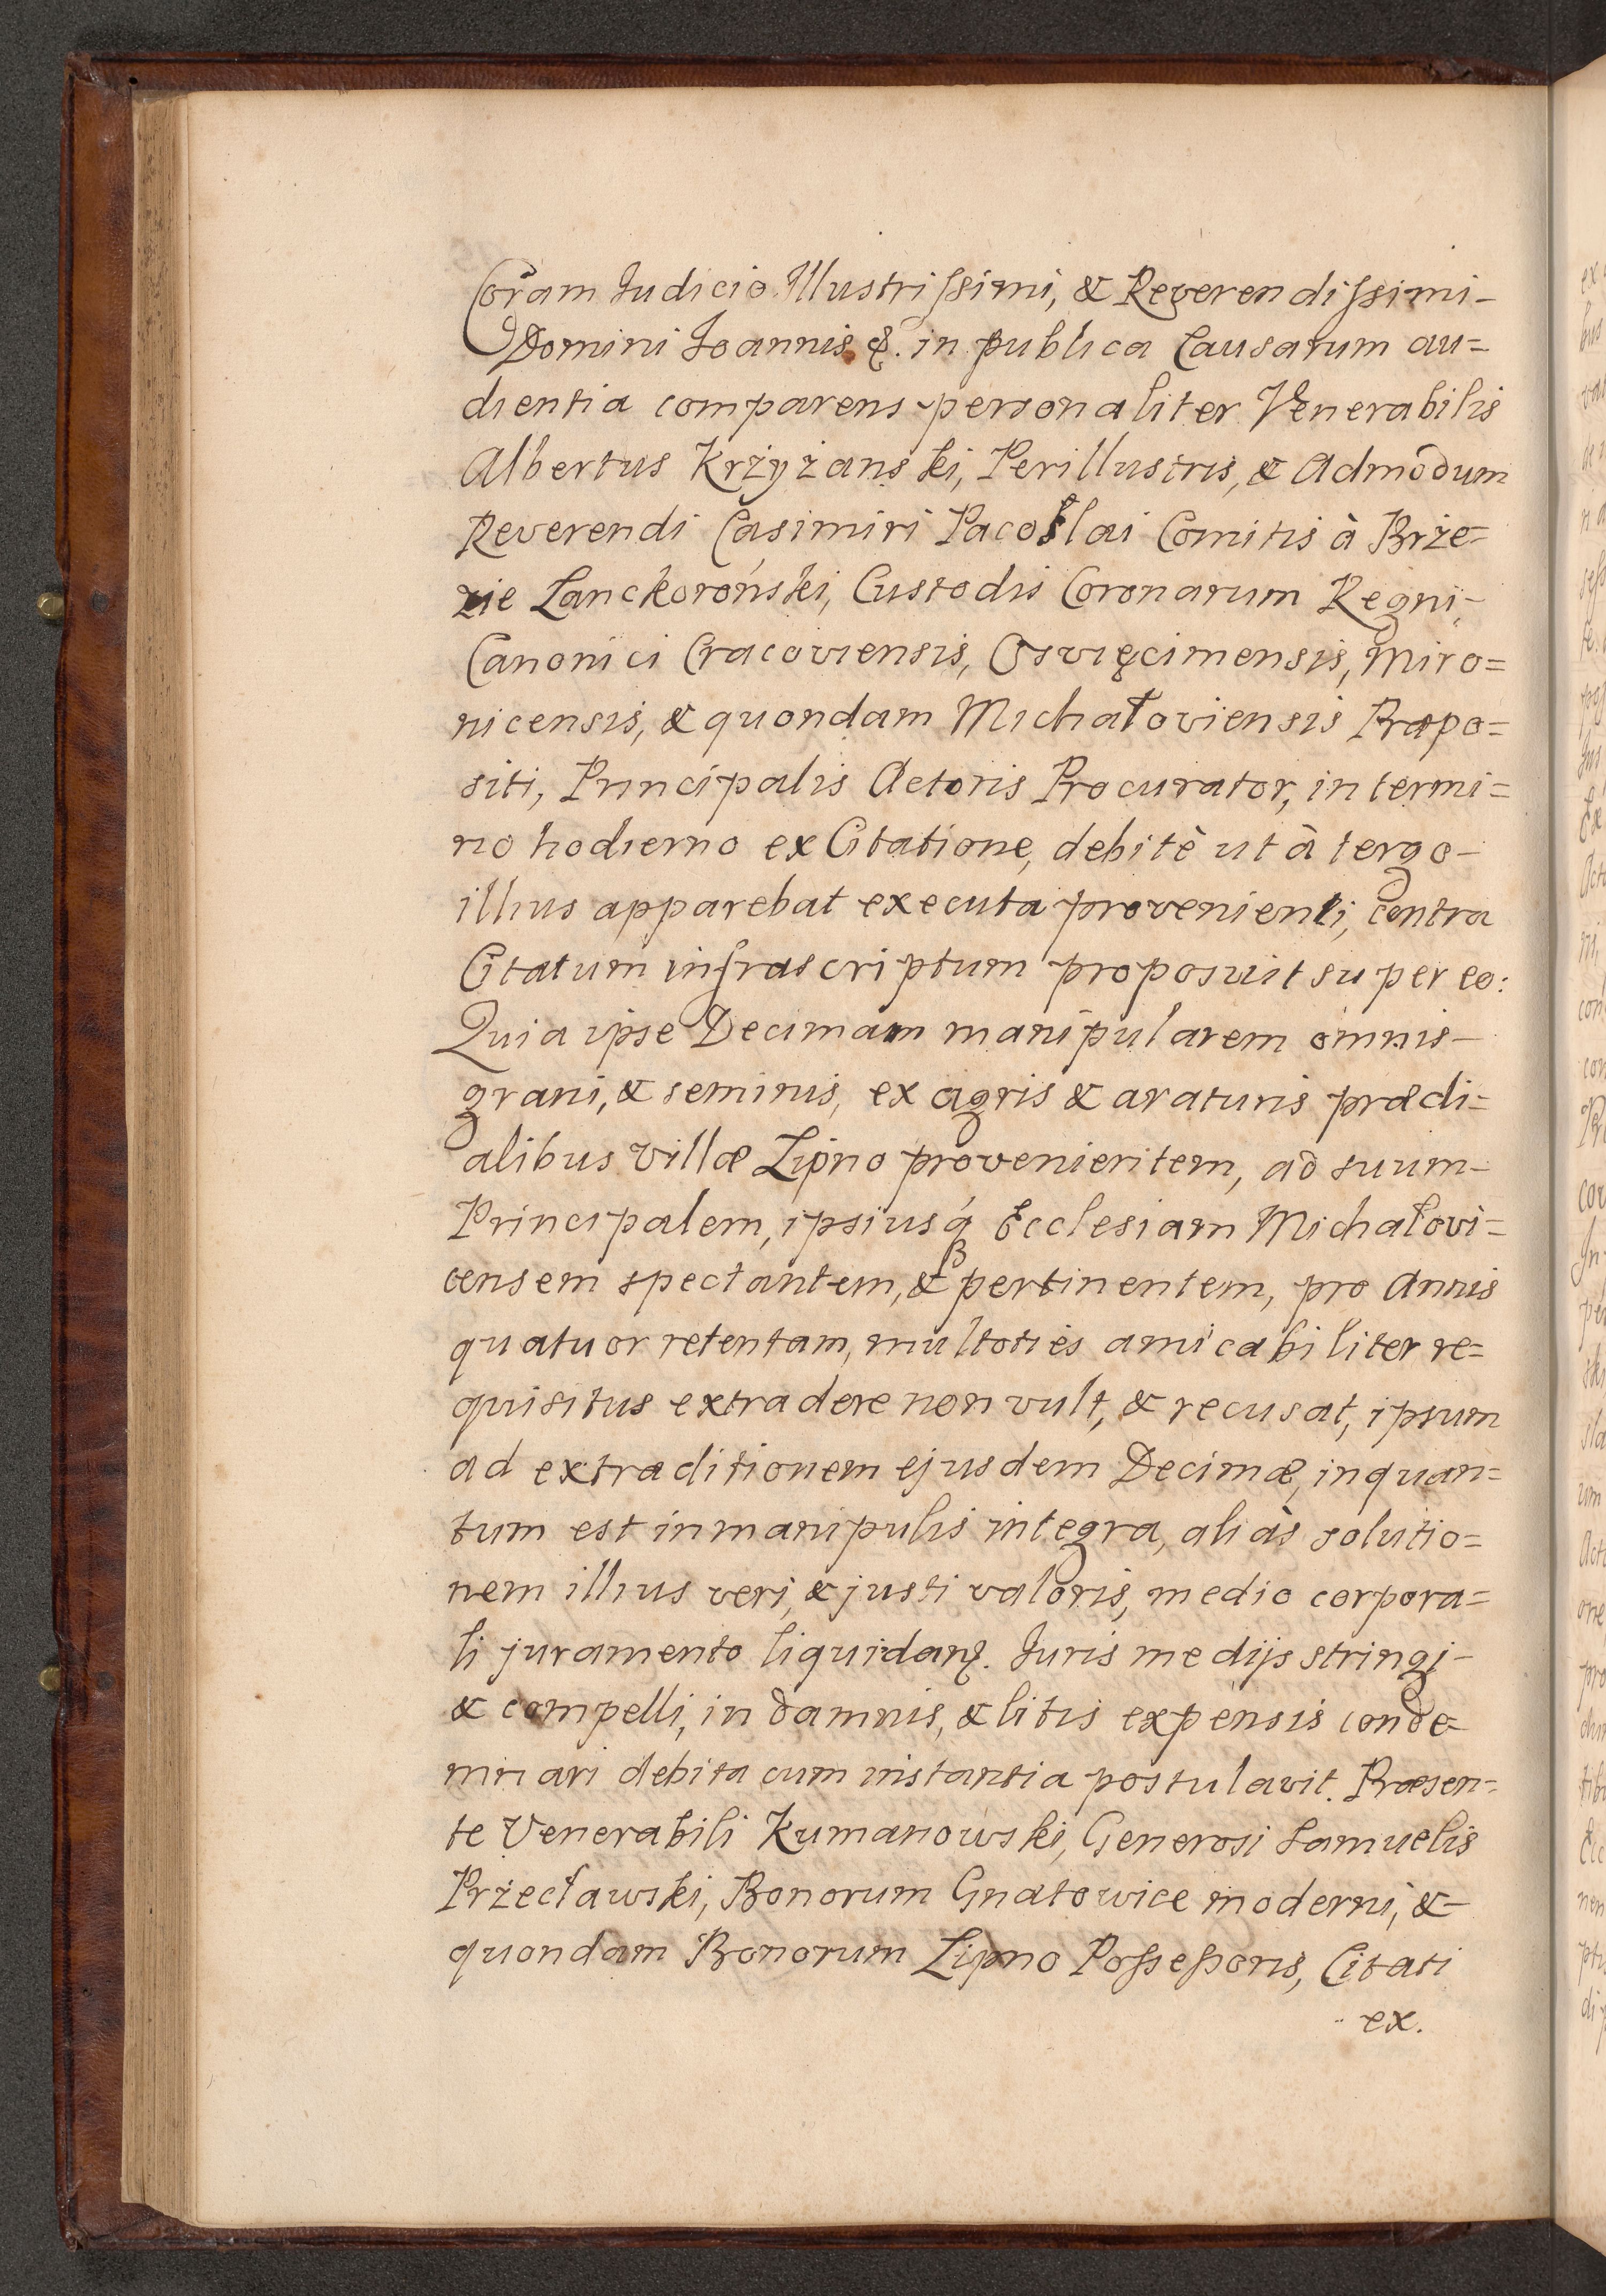 Coram Judicio Illustrissimi, & Reverendissimi-
Domini Joannis &. in publica Causarum au=
dientia comparens personaliter Venerabilis
Albertus Krżyżanski, Perillustris, & Admodum
Reverendi Casimiri Pacoslai Comitis à Brże=
zie Lanckoroński, Custodis Coronarum Regni,-
Canonici Cracoviensis, Osvięcimensis, Miro=
nicensis, & quondam Michałoviensis Præpo=
siti, Principalis Actoris Procurator, in termi=
no hodierno ex Citatione, debitè ut à tergo-
illius apparebat executa provenienti, contra
Citatum infrascriptum proposuit super eo:
Quia ipse Decimam manipularem omnis-
grani, & seminis, ex agris & araturis prædi=
alibus villæ Lipno provenientem, ad suum-
Principalem, ipsiusq́ Ecclesiam Michałovi=
censem spectantem, & pertinentem, pro Annis
quatuor retentam, multoties amicabiliter re=
quisitus extradere non vult, & recusat, ipsum
ad extraditionem ejusdem Decimæ, inquan=
tum est in manipulis integra, aliàs solutio=
nem illius veri, & justi valoris, medio corpora=
li juramento liquidanę. Juris medijs stringi-
& compelli, in damnis, & litis expensis conde=
mnari debita cum instantia postulavit. Præsen=
te Venerabili Kumanowski, Generosi Samuelis
Prżecławski, Bonorum Gnatowice moderni, &-
quondam Bonorum Lipno Possessoris, Citati
ex.